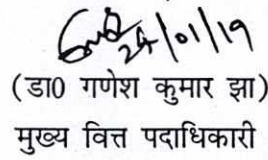 24/01/19
(डा0 गणेश कुमार झा)
मुख्य वित्त पदाधिकारी